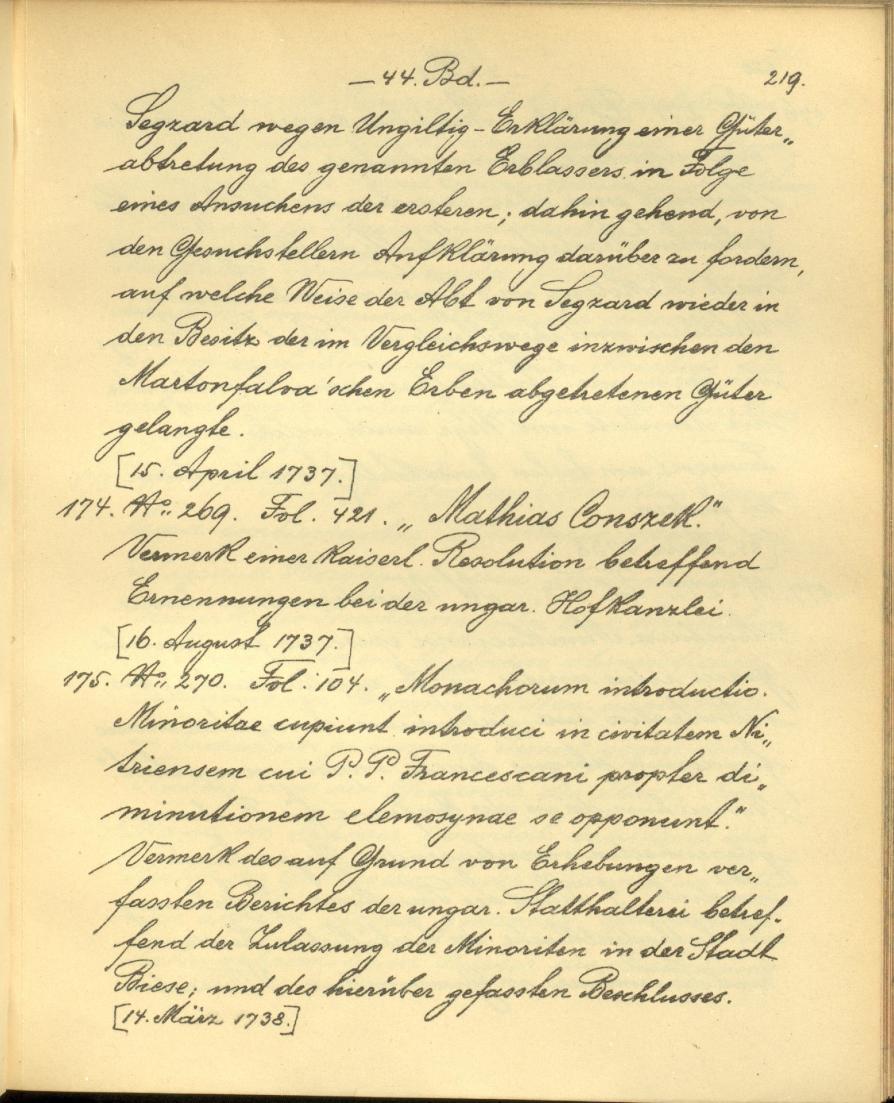 — 44. Bd. — 219.
Segzard wegen Ungiltig-Erklärung einer Güter„
abtretung des genannten Erblassers in Folge
eines Ansuchens der ersteren; dahin gehend, von
den Gesuchstellern Aufklärung darüber zu fordern,
auf welche Weise der Abt von Segzard wieder in
den Besitz der im Vergleichswege inzwischen den
Martonfalva'schen Erben abgetretenen Güter
gelangte.
[15. April 1737.]
174. No. 269. Fol. 421. „Mathias Conszek."
Vermerk einer kaiserl. Resolution betreffend
Ernennungen bei der ungar. Hofkanzlei.
[16. August 1737.]
175. No. 270. Fol. 104. „Monachorum introductio.
Minoritae cupiunt introduci in civitatem Ni„
triensem cui P. P. Francescani propter di„
minutionem elemosynae se opponunt."
Vermerk des auf Grund von Erhebungen ver„
fassten Berichtes der ungar. Statthalterei betref-
fend der Zulassung der Minoriten in der Stadt
Biese; und des hierüber gefassten Beschlusses.
[14. März 1738.]